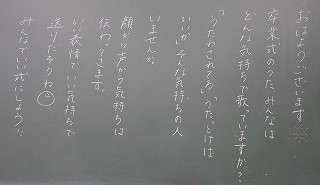 おはようございます
卒業式のうた、みんなは
どんな気持ちで歌っていますか？
「うたわされてる」「うた、とけば
いいか」そんな気持ちの人
いませんか。
顔から声から気持ちは
伝わってきます。
いい表情、いい気持ちで
送りたいよね
みんなでいい式にしよう！！